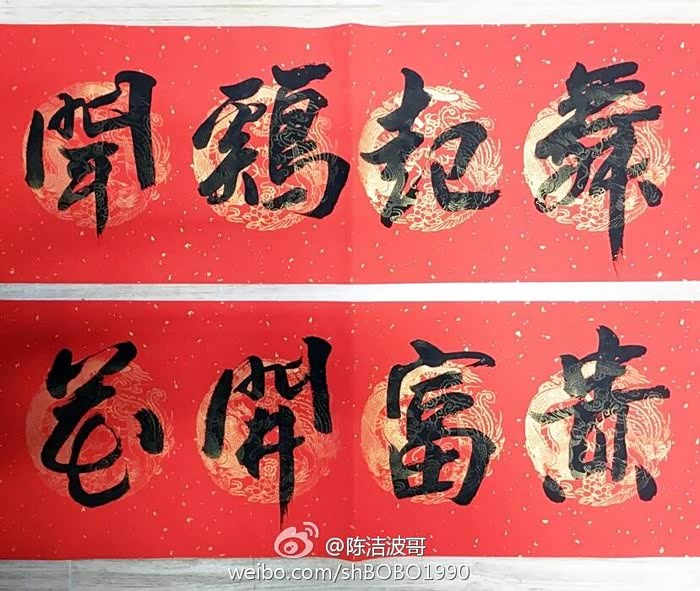 聞鷄起舞
花開富貴
@陈洁波哥
weibo.com/shBOBO1990